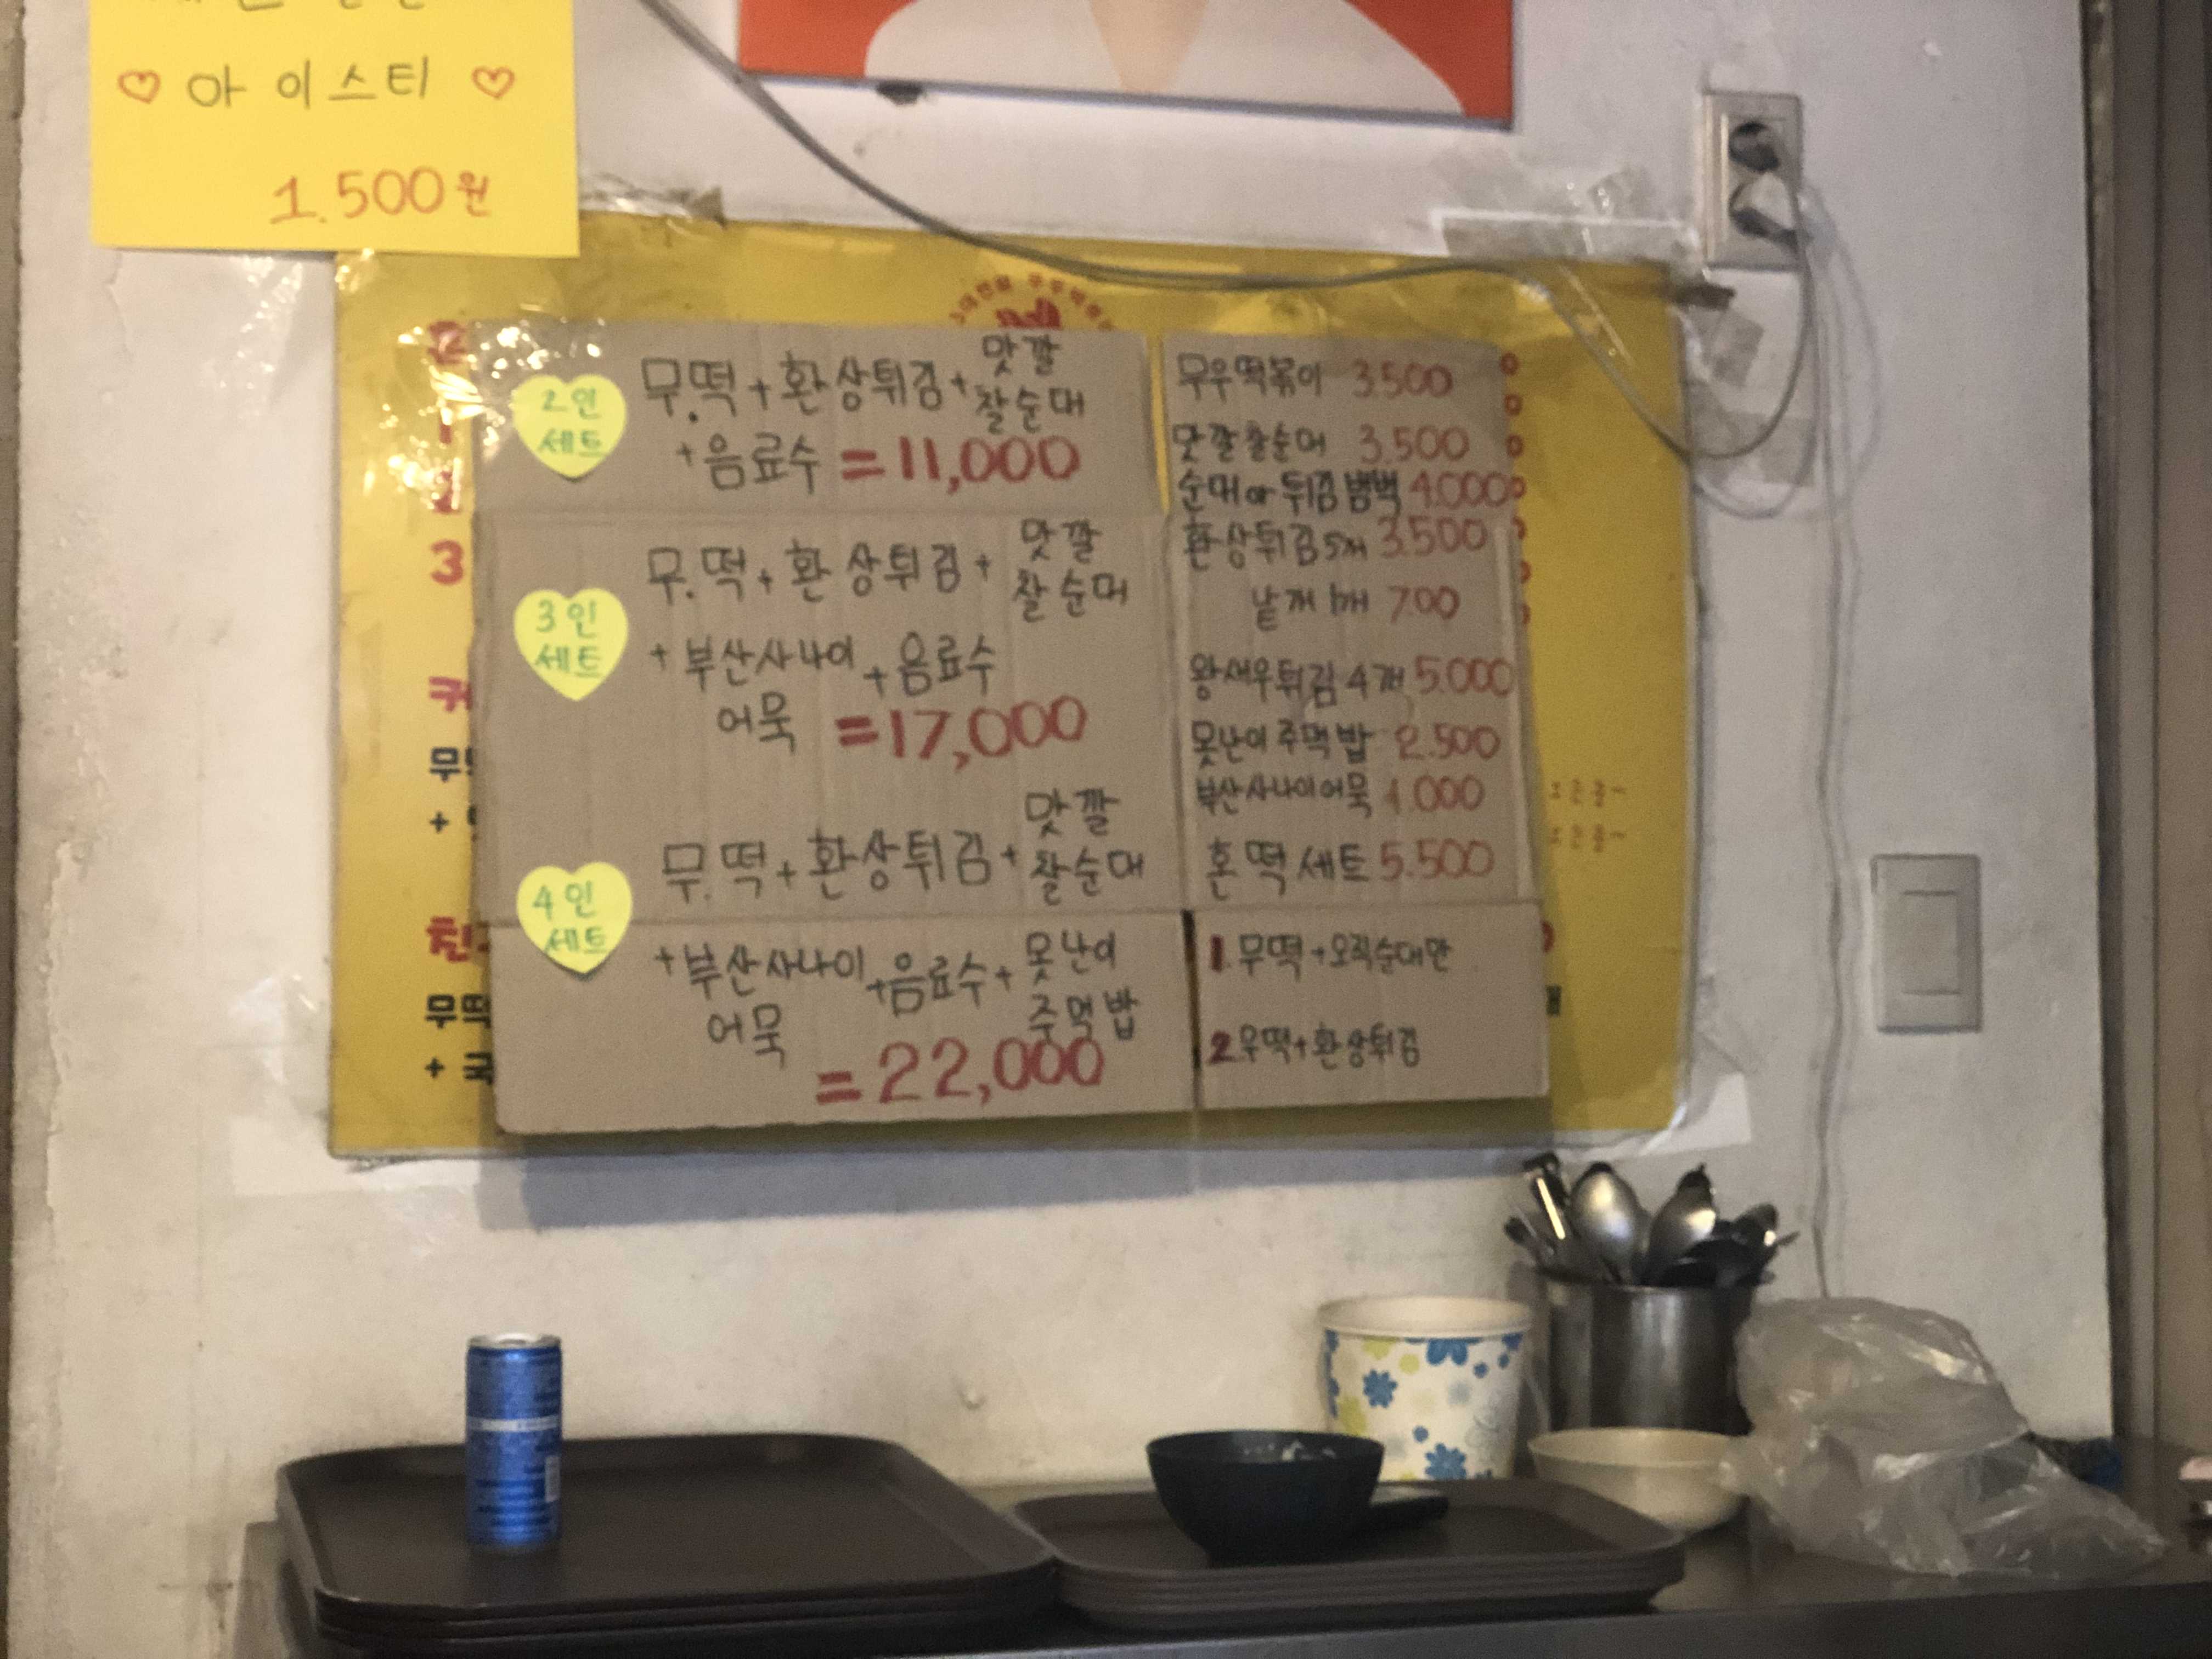 ♡ 아이스티 ♡
1.500원
2인
세트
무.떡+환상튀김+맛깔
찰순대
+음료수 =11,000
3인
세트
무.떡+환상튀김+맛깔
찰순대
+부산사나이+음료수
어묵 =17,000
4인
세트
무.떡+환상튀김+맛깔
찰순대
+부산사나이+음료수+못난이
어묵 주먹밥
=22,000
무우떡볶이 3.500
맛깔찰순대 3.500
순대or튀김범벅 4.000
환상튀김5개 3.500
낱개1개 700
왕새우튀김4개 5.000
못난이주먹밥 2.500
부산사나이어묵
혼떡세트 5.500
1.무떡+오직순대만
2.무떡+환상튀김
3